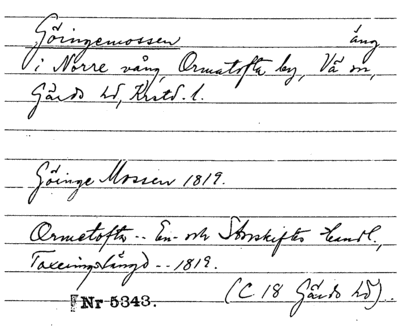 Göingemossen äng
i Norre vång, Ormatofta by, Vä sn,
Gärds hd, Krstd. l.
Göinge Mossen 1819.
Ormatofta -- En- och Storskiftes Handl.,
Taxeringslängd -- 1819.
(C 18 Gärds hd)
Nr 5343.